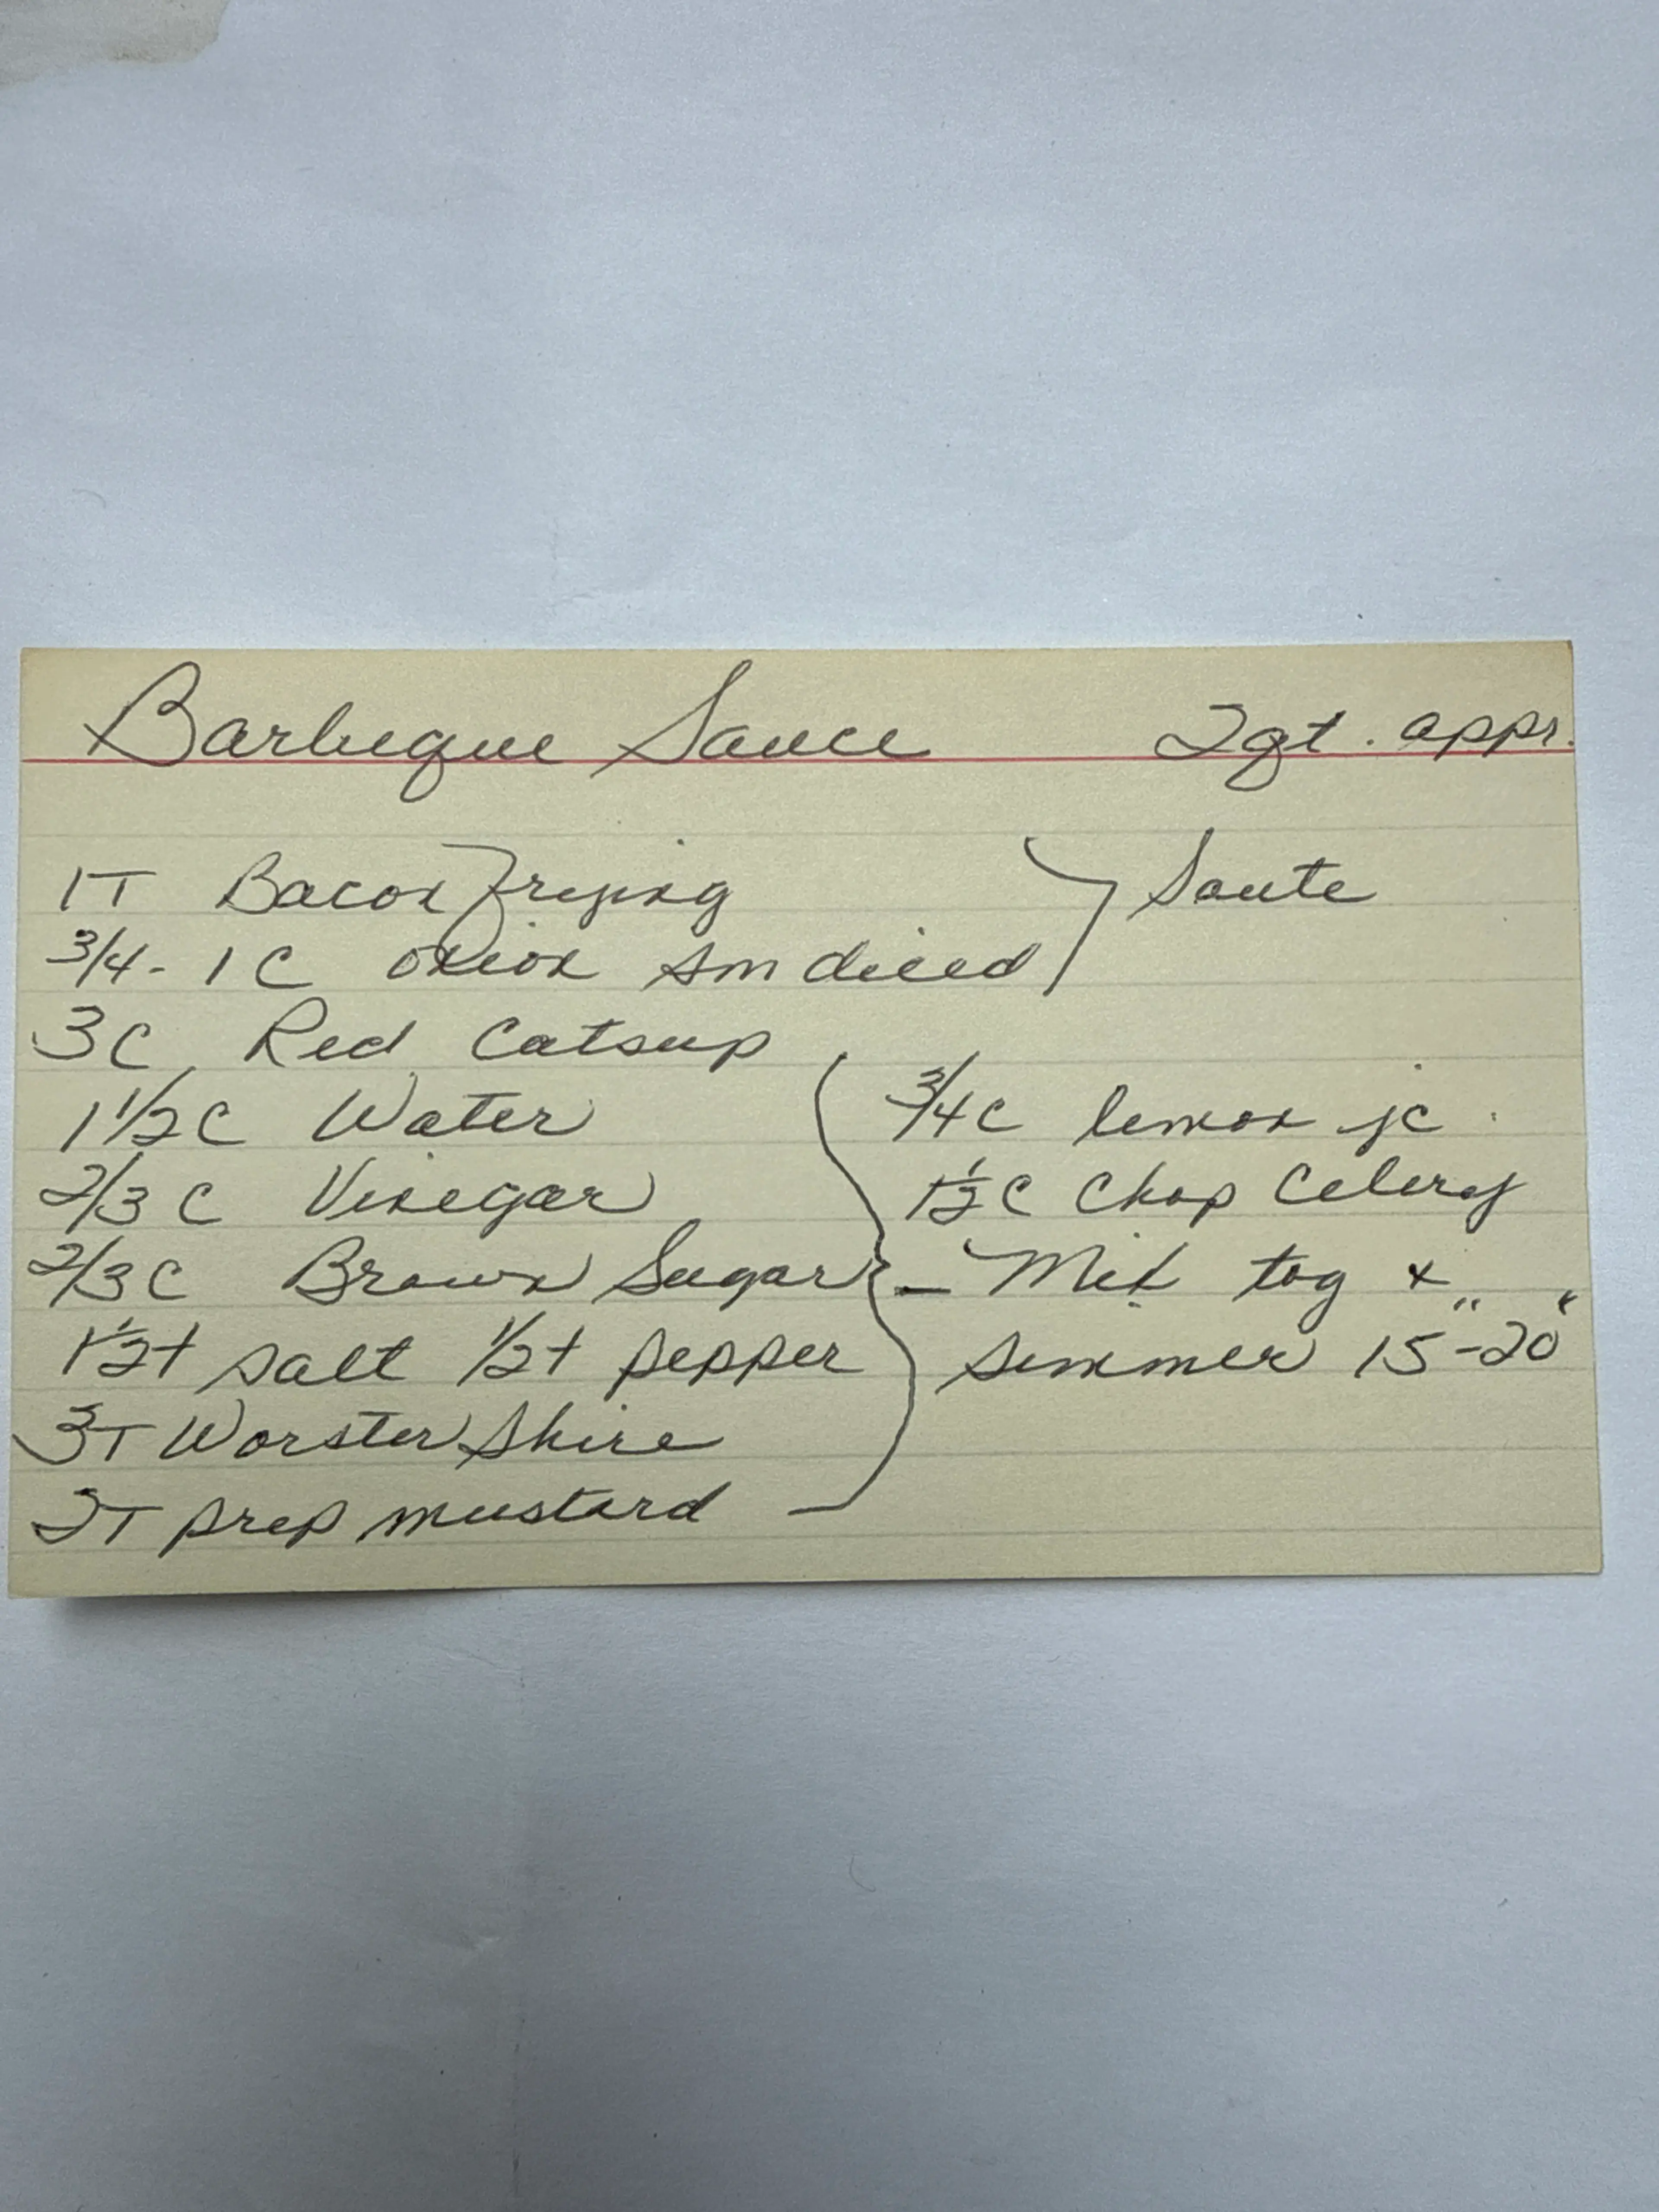 Barbeque Sauce 2qt. appr.
1T Bacon frying } Saute
3/4 - 1 C onion sm diced
3C Red Catsup
1 1/2 C Water
2/3 C Vinegar
2/3 C Brown Sugar
1 1/2 t salt 1/2 t pepper
3T WorsterShire
2T prep mustard
3/4 C lemon jc.
1 1/2 C Chop Celery
- Mix tog +
simmer 15"-20"